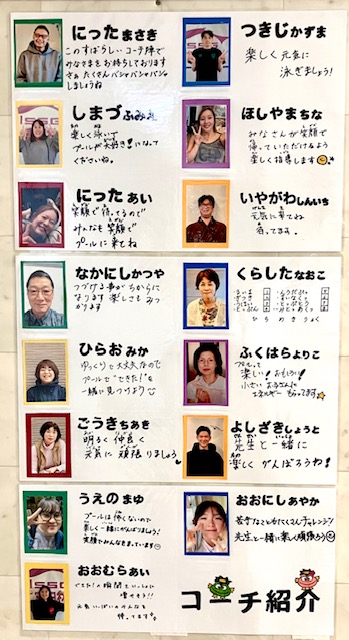 にった まさき
このすばらしいコーチ陣で
みなさまをお待ちしております
さぁ たくさんバシャバシャバシャ
しましょうね
つきじ かずま
楽しく元気に
泳ぎましょう!
しまづ ふみえ
楽しく泳いで
プールが大好き!になって
くださいね。
ほしやま ちな
みなさんが笑顔で
帰っていただけるよう
楽しく指導します
にった あい
笑顔で待ってるので
みんなも笑顔で
プールに来てね
いやがわ しんいち
元気に来てね
待ってます。
なかにし かつや
つづける事がちからに
なります 楽しさもみつ
かります
くらした なおこ
ひらお みか
ゆっくりで大丈夫なので
プールで"できた!"を
一緒に見つけよう
ふくはら よりこ
楽しい!おもしろい!
小さいお子さんに
ごうぎ ちあき
明るく仲良く
元気に頑張りましょう
よしざき しょうと
先生と一緒に
楽しくがんばろうね!
うえの まゆ
プールは怖くないので
楽しく一緒にがんばりましょう!
笑顔でみんなをまっています
おおにし あやか
苦手なこともたくさんチャレンジ!
先生と一緒に楽しく頑張ろう
おおむら あい
できた!の瞬間をいっしょに
増やそう!!
元気いっぱいのみんなを
待ってます
コーチ紹介